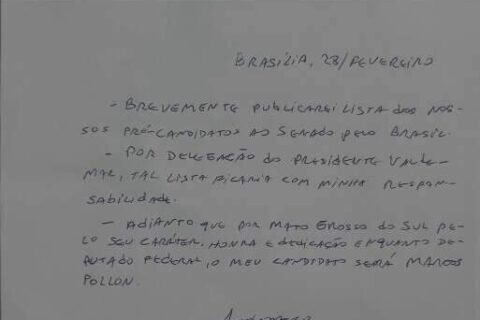 BRASÍLIA, 28/FEVEREIRO
- BREVEMENTE PUBLICAREI LISTA DOS NOS-
SOS PRÉ-CANDIDATOS AO SENADO PELO BRASIL.
- POR DELEGAÇÃO DO PRESIDENTE VALDE-
MAR, TAL LISTA FICARIA COM MINHA RESPON-
SABILIDADE.
- ADIANTO QUE POR MATO GROSSO DO SUL PE-
LO SEU CARÁTER, HONRA E DEDICAÇÃO ENQUANTO DE-
PUTADO FEDERAL, O MEU CANDIDATO SERÁ MARCOS
POLLON.